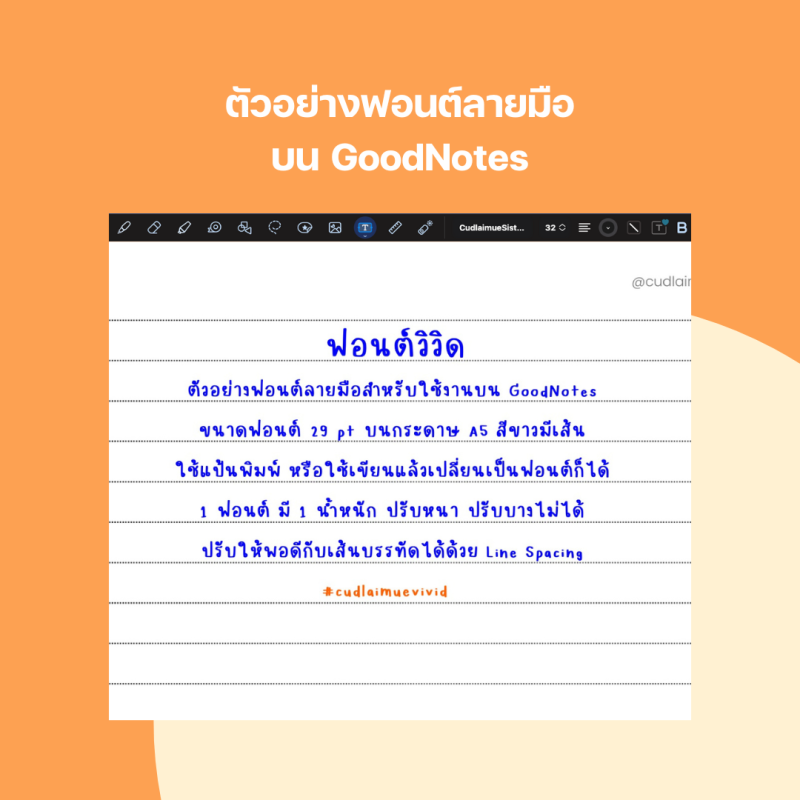 ตัวอย่างฟอนต์ลายมือ
บน GoodNotes
CudlaimueSist... 32 B
@cudlai
ฟอนต์วิวิด
ตัวอย่างฟอนต์ลายมือสำหรับใช้งานบน GoodNotes
ขนาดฟอนต์ 29 pt บนกระดาษ A5 สีขาวมีเส้น
ใช้แป้นพิมพ์ หรือใช้เขียนแล้วเปลี่ยนเป็นฟอนต์ก็ได้
1 ฟอนต์ มี 1 น้ำหนัก ปรับหนา ปรับบางไม่ได้
ปรับให้พอดีกับเส้นบรรทัดได้ด้วย Line Spacing
#cudlaimuevivid